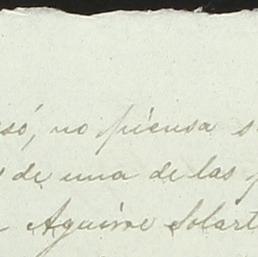 esó, no piensa s
de una de las p
Aguirre Solart